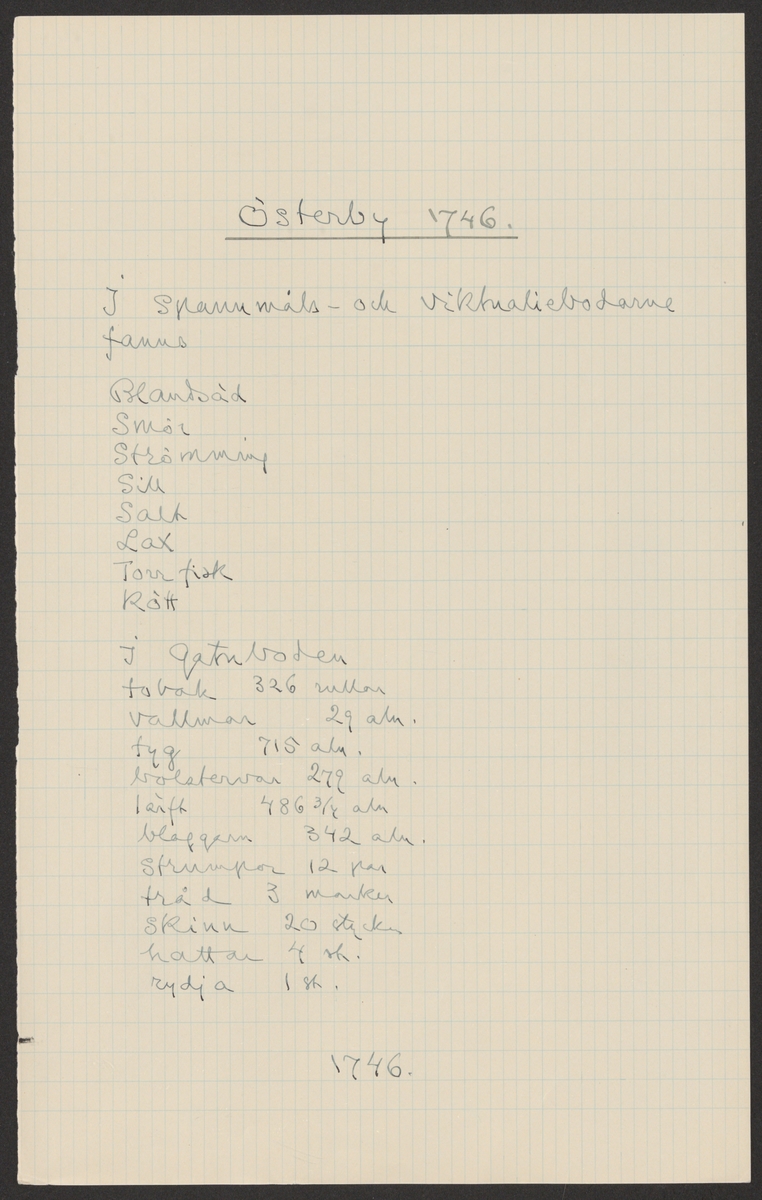 Österby 1746.
I Spannmåls- och Viktualiebodarne
fanns
Blandsäd
Smör
Strömming
Sill
Salt
Lax
Torr fisk
Kött
I Gatuboden
tobak 326 rullar
vallmar 29 aln.
tyg 715 aln.
bolstervar 279 aln.
lärft 486 3/4 aln
blaggarn 342 aln.
Strumpor 12 par
tråd 3 marker
Skinn 20 stycken
hattar 4 st.
rydja 1 st.
1746.